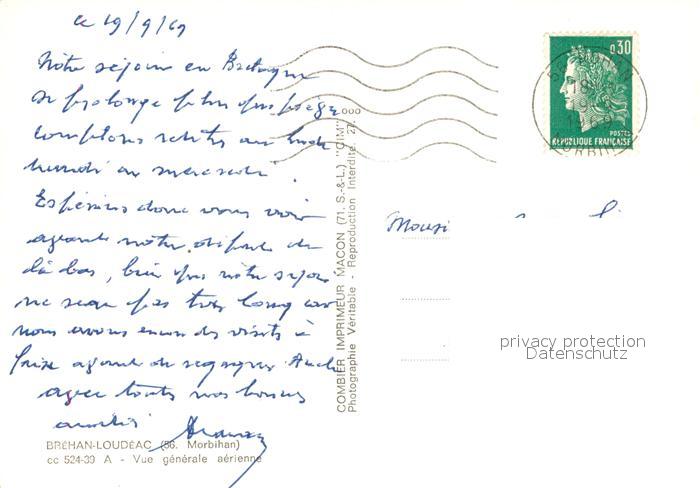 ce 19/9/69
Notre séjour en Bretagne
se prolonge plus que
comptons rentrer
lundi ou mercredi.
Espérons donc vous voir
avant notre départ de
là bas, bien que notre séjour
ne sera pas très long car
nous avons encore des visites à
faire avant de regagner
avec toutes nos bonnes
amitiés
BRÉHAN-LOUDÉAC (56. Morbihan)
cc 524-39 A - Vue générale aérienne
COMBIER IMPRIMEUR MACON (71. S.-&-L.) "CIM"
Photographie Véritable - Reproduction Interdite.
0,30
POSTES
RÉPUBLIQUE FRANÇAISE
MORBIHAN
privacy protection
Datenschutz